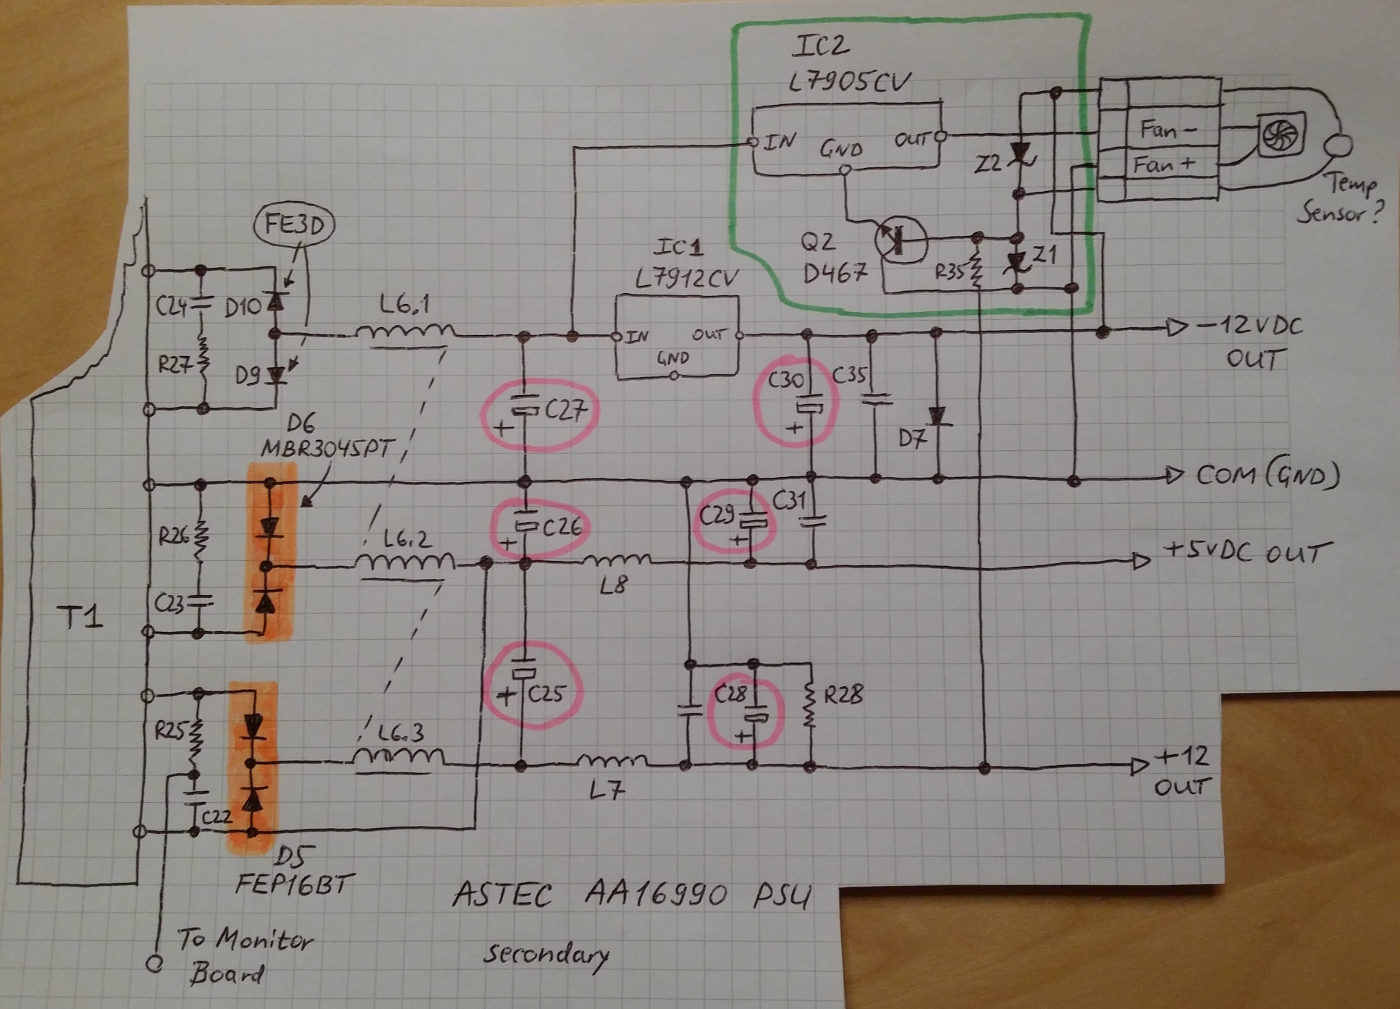 IC2
L7905CV
IN
GND
OUT
Fan -
Fan +
Temp
Sensor?
Z2
Q2
D467
R35
Z1
FE3D
IC1
L7912CV
IN
OUT
GND
C24
D10
L6.1
R27
D9
-12VDC
OUT
C27
C30
C35
D7
D6
MBR3045PT
COM (GND)
R26
C23
L6.2
C26
C29
C31
L8
+5VDC OUT
T1
+
+
+
+
R25
C22
L6.3
+
C25
C28
+
R28
L7
+12
OUT
D5
FEP16BT
ASTEC AA16990 PSU
secondary
To Monitor
Board